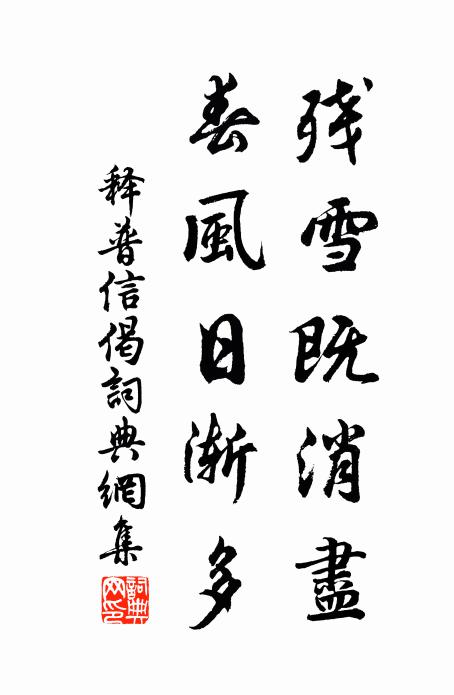 残雪既消盡
春風日漸多
释普信偈詞典網集
詞典網印